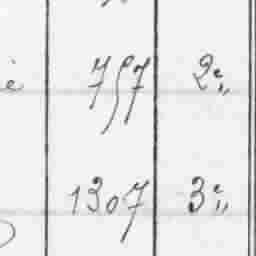 è 757 2e„
1307 3e„